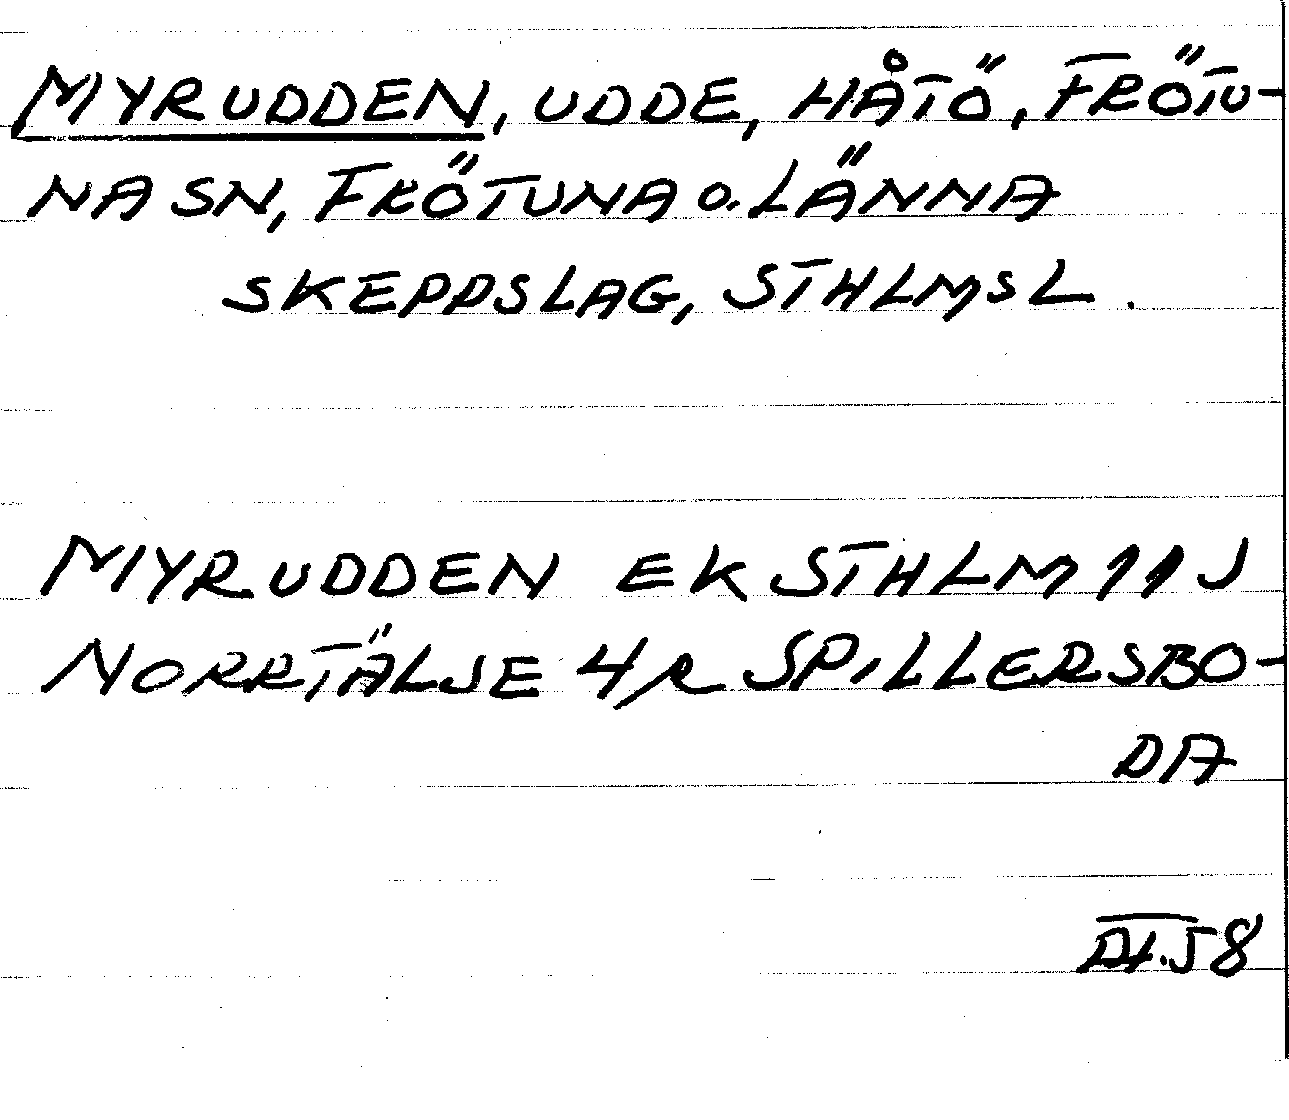 MYRUDDEN, UDDE, HÅTÖ, FRÖTU-
NA SN, FRÖTUNA O. LÄNNA
SKEPPSLAG, STHLMSL.
MYRUDDEN EK STHLM 11J
NORRTÄLJE 4/R SPILLERSBO-
DA
58